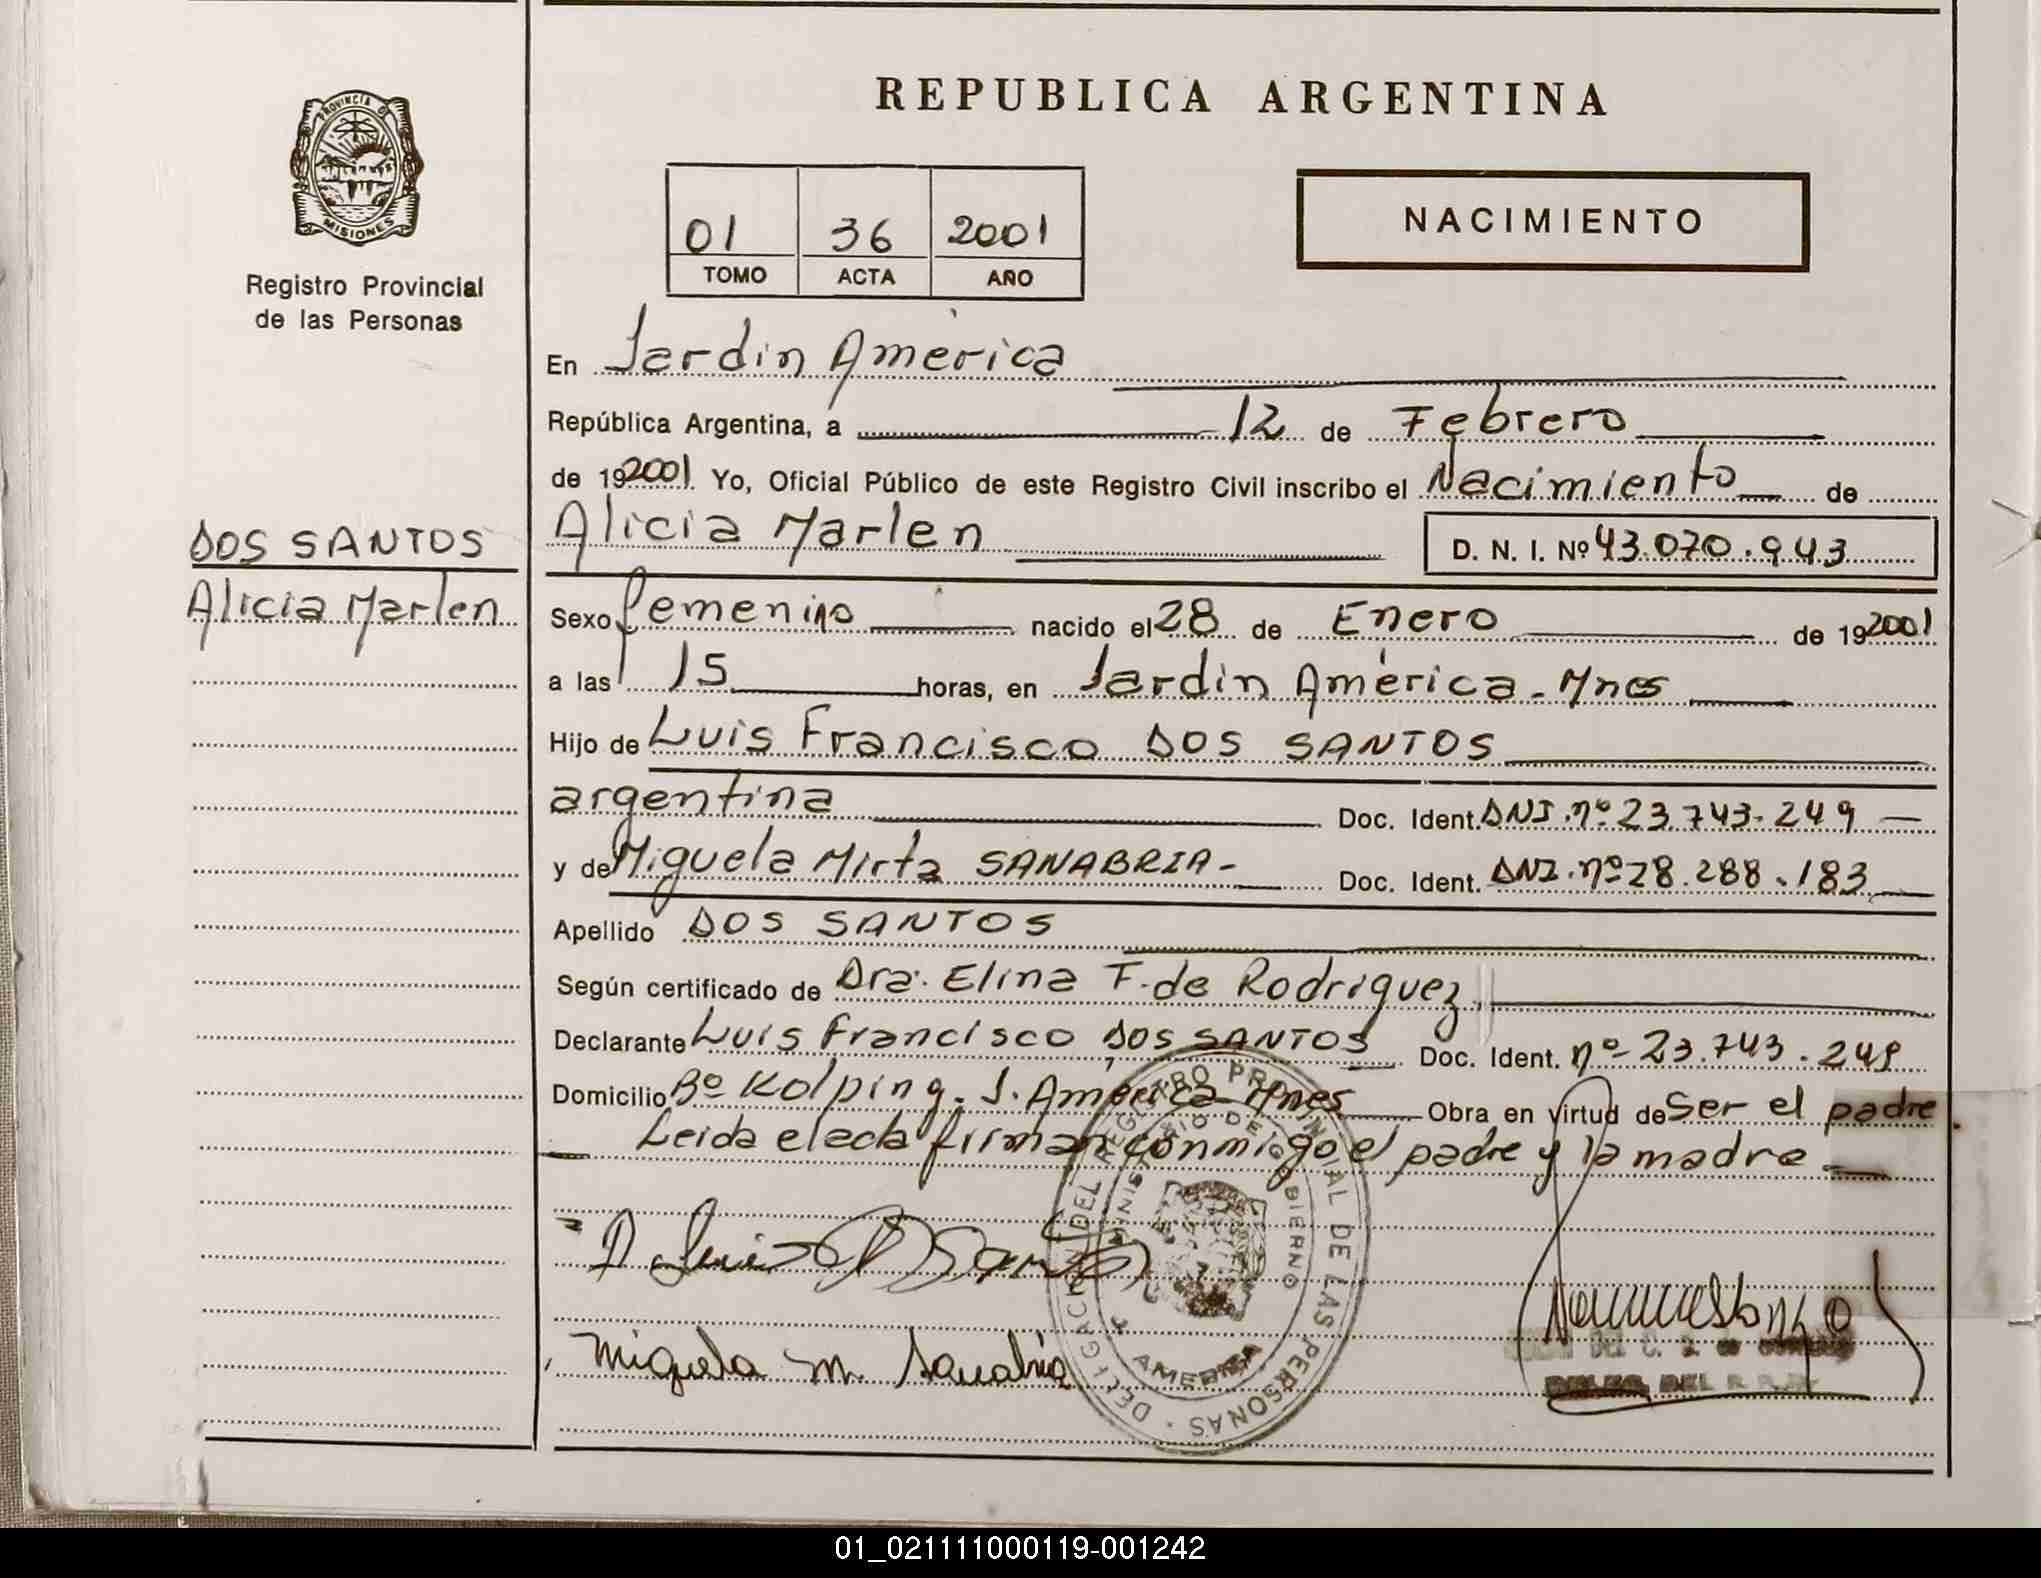 REPUBLICA ARGENTINA
PROVINCIA DE
MISIONES
Registro Provincial
de las Personas
01 36 2001
TOMO ACTA AÑO
NACIMIENTO
En Jardin América
República Argentina, a 12 de Febrero
de 192001 Yo, Oficial Público de este Registro Civil inscribo el Nacimiento de
DOS SANTOS
Alicia Marlen
Alicia Marlen D. N. I. Nº 43.070.943
Sexo femenino nacido el 28 de Enero de 192001
a las 15 horas, en Jardin América - Mnes
Hijo de Luis Francisco DOS SANTOS
argentina Doc. Ident. DNI. nº 23.743.249
y de Miguela Mirta SANABRIA - Doc. Ident. DNI. nº 28.288.183
Apellido DOS SANTOS
Según certificado de Dra. Elina F. de Rodriguez
Declarante Luis Francisco DOS SANTOS Doc. Ident. nº 23.743.249
Domicilio Bº Kolping. J. América Mnes Obra en virtud de Ser el padre
Leida el acta firman conmigo el padre y la madre
DELEGACION DEL REGISTRO PROVINCIAL DE LAS PERSONAS
MINISTERIO DE GOBIERNO
AMERICA
Miguela M. Sanabria
01_021111000119-001242